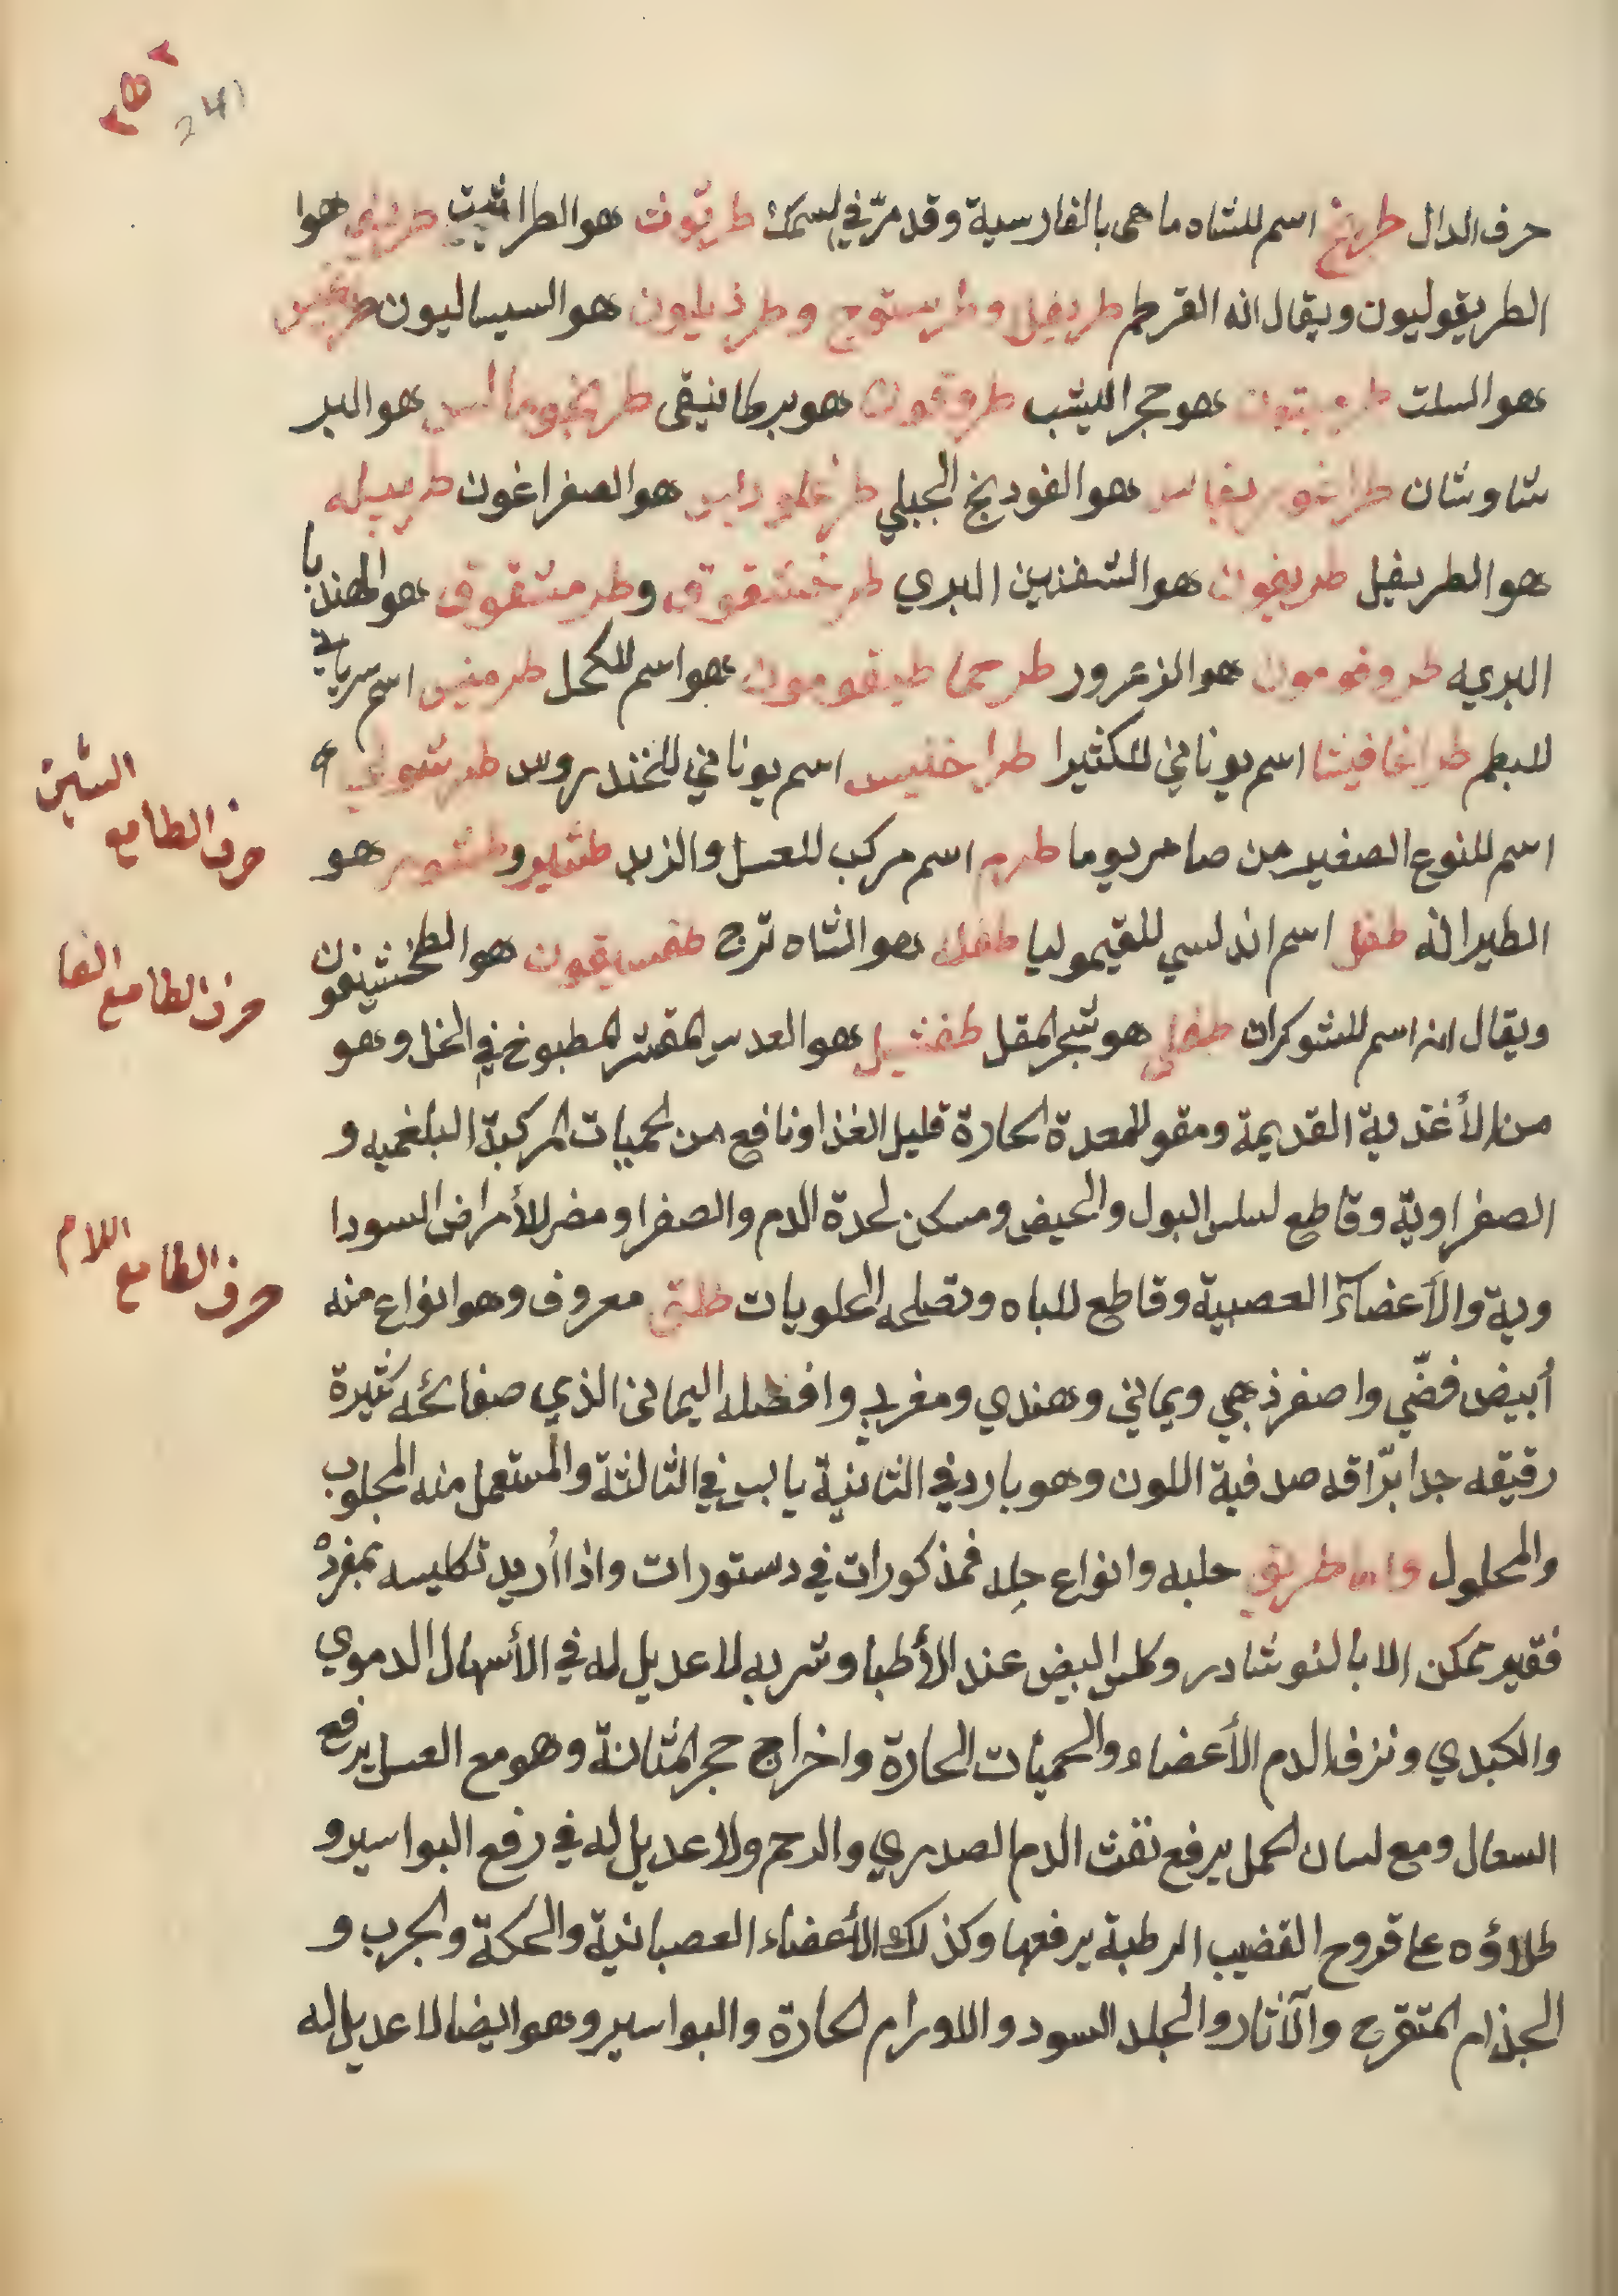 241
حرف الدال طريخ اسم للشاه ماهى بالفارسية وقد مرّ في السمك طريّوث هو الطراثيث هوا
الطريقوليون ويقال انه القرطم طريفل وطريستوج وطرذيليون هو السيساليون
هو السلت هو حجر اليشب هو برطانيقى هو البر
شاوشان هو الفودنج الجبلي هو الصفراغون
هو الطريفل طريغون هو الشفنين البري طرخشقوق وطرمشقوق هو الهندبا
البريه هو الزعرور هو اسم للكحل طرمنيس اسم سرياني
للبطم طراغافيثا اسم يوناني للكثيرا طراخنيس اسم يوناني للخندروس
اسم للنوع الصغير من صامريوما طرم اسم مركب للعسل والزبد هو
الطيرافه طفل اسم اندلسي للقيموليا هو الشاه ترج هو الطخشيقون
ويقال انه اسم للشوكران طفى هو شجر المقل طفشيل هو العدس المقشر المطبوخ في الخل وهو
من الأغذية القديمة ومقو للمعدة الحارة قليل الغذا ونافع من الحميات المركبة البلغميه و
الصفراوية وقاطع لسلس البول والحيض ومسكن لحدة الدم والصفرا ومضر للأمراض السودا
وية والأعضآء العصبية وقاطع للباه وتصلحه الحلويات طلق معروف وهو انواع منه
أبيض فضّي واصفر ذهبي ويماني وهندي ومغربي وافضله اليمانى الذي صفائحه كثيرة
رقيقه جدا برّاقه صدفية اللون وهو بارد في الثانية يابس في الثالثة والمستعمل منه المحلوب
والمحلول واما طريق حلبه وانواع حله فمذكورات في دستورات واذا أريد تكليسه بمفرده
فغير ممكن الا بالنوشادر وكلس البيض عند الأطبا وشربه لا عديل له في الأسهال الدموي
والكبدي ونزف الدم الأعضاء والحميات الحارة واخراج حجر المثانة وهو مع العسل يرفع
السعال ومع لسان الحمل يرفع نفث الدم الصدري والرحم ولا عديل له في رفع البواسير و
طلاؤه على قروح القضيب الرطبة يرفعها وكذلك الأعضاء العصبانية والحكة والجرب و
الجذام المتقرح والآثار والجلد السود والاورام الحارة والبواسير وهو ايضا لا عديل له
حرف الطا مع الشين
حرف الطا مع الفا
حرف الطا مع اللام